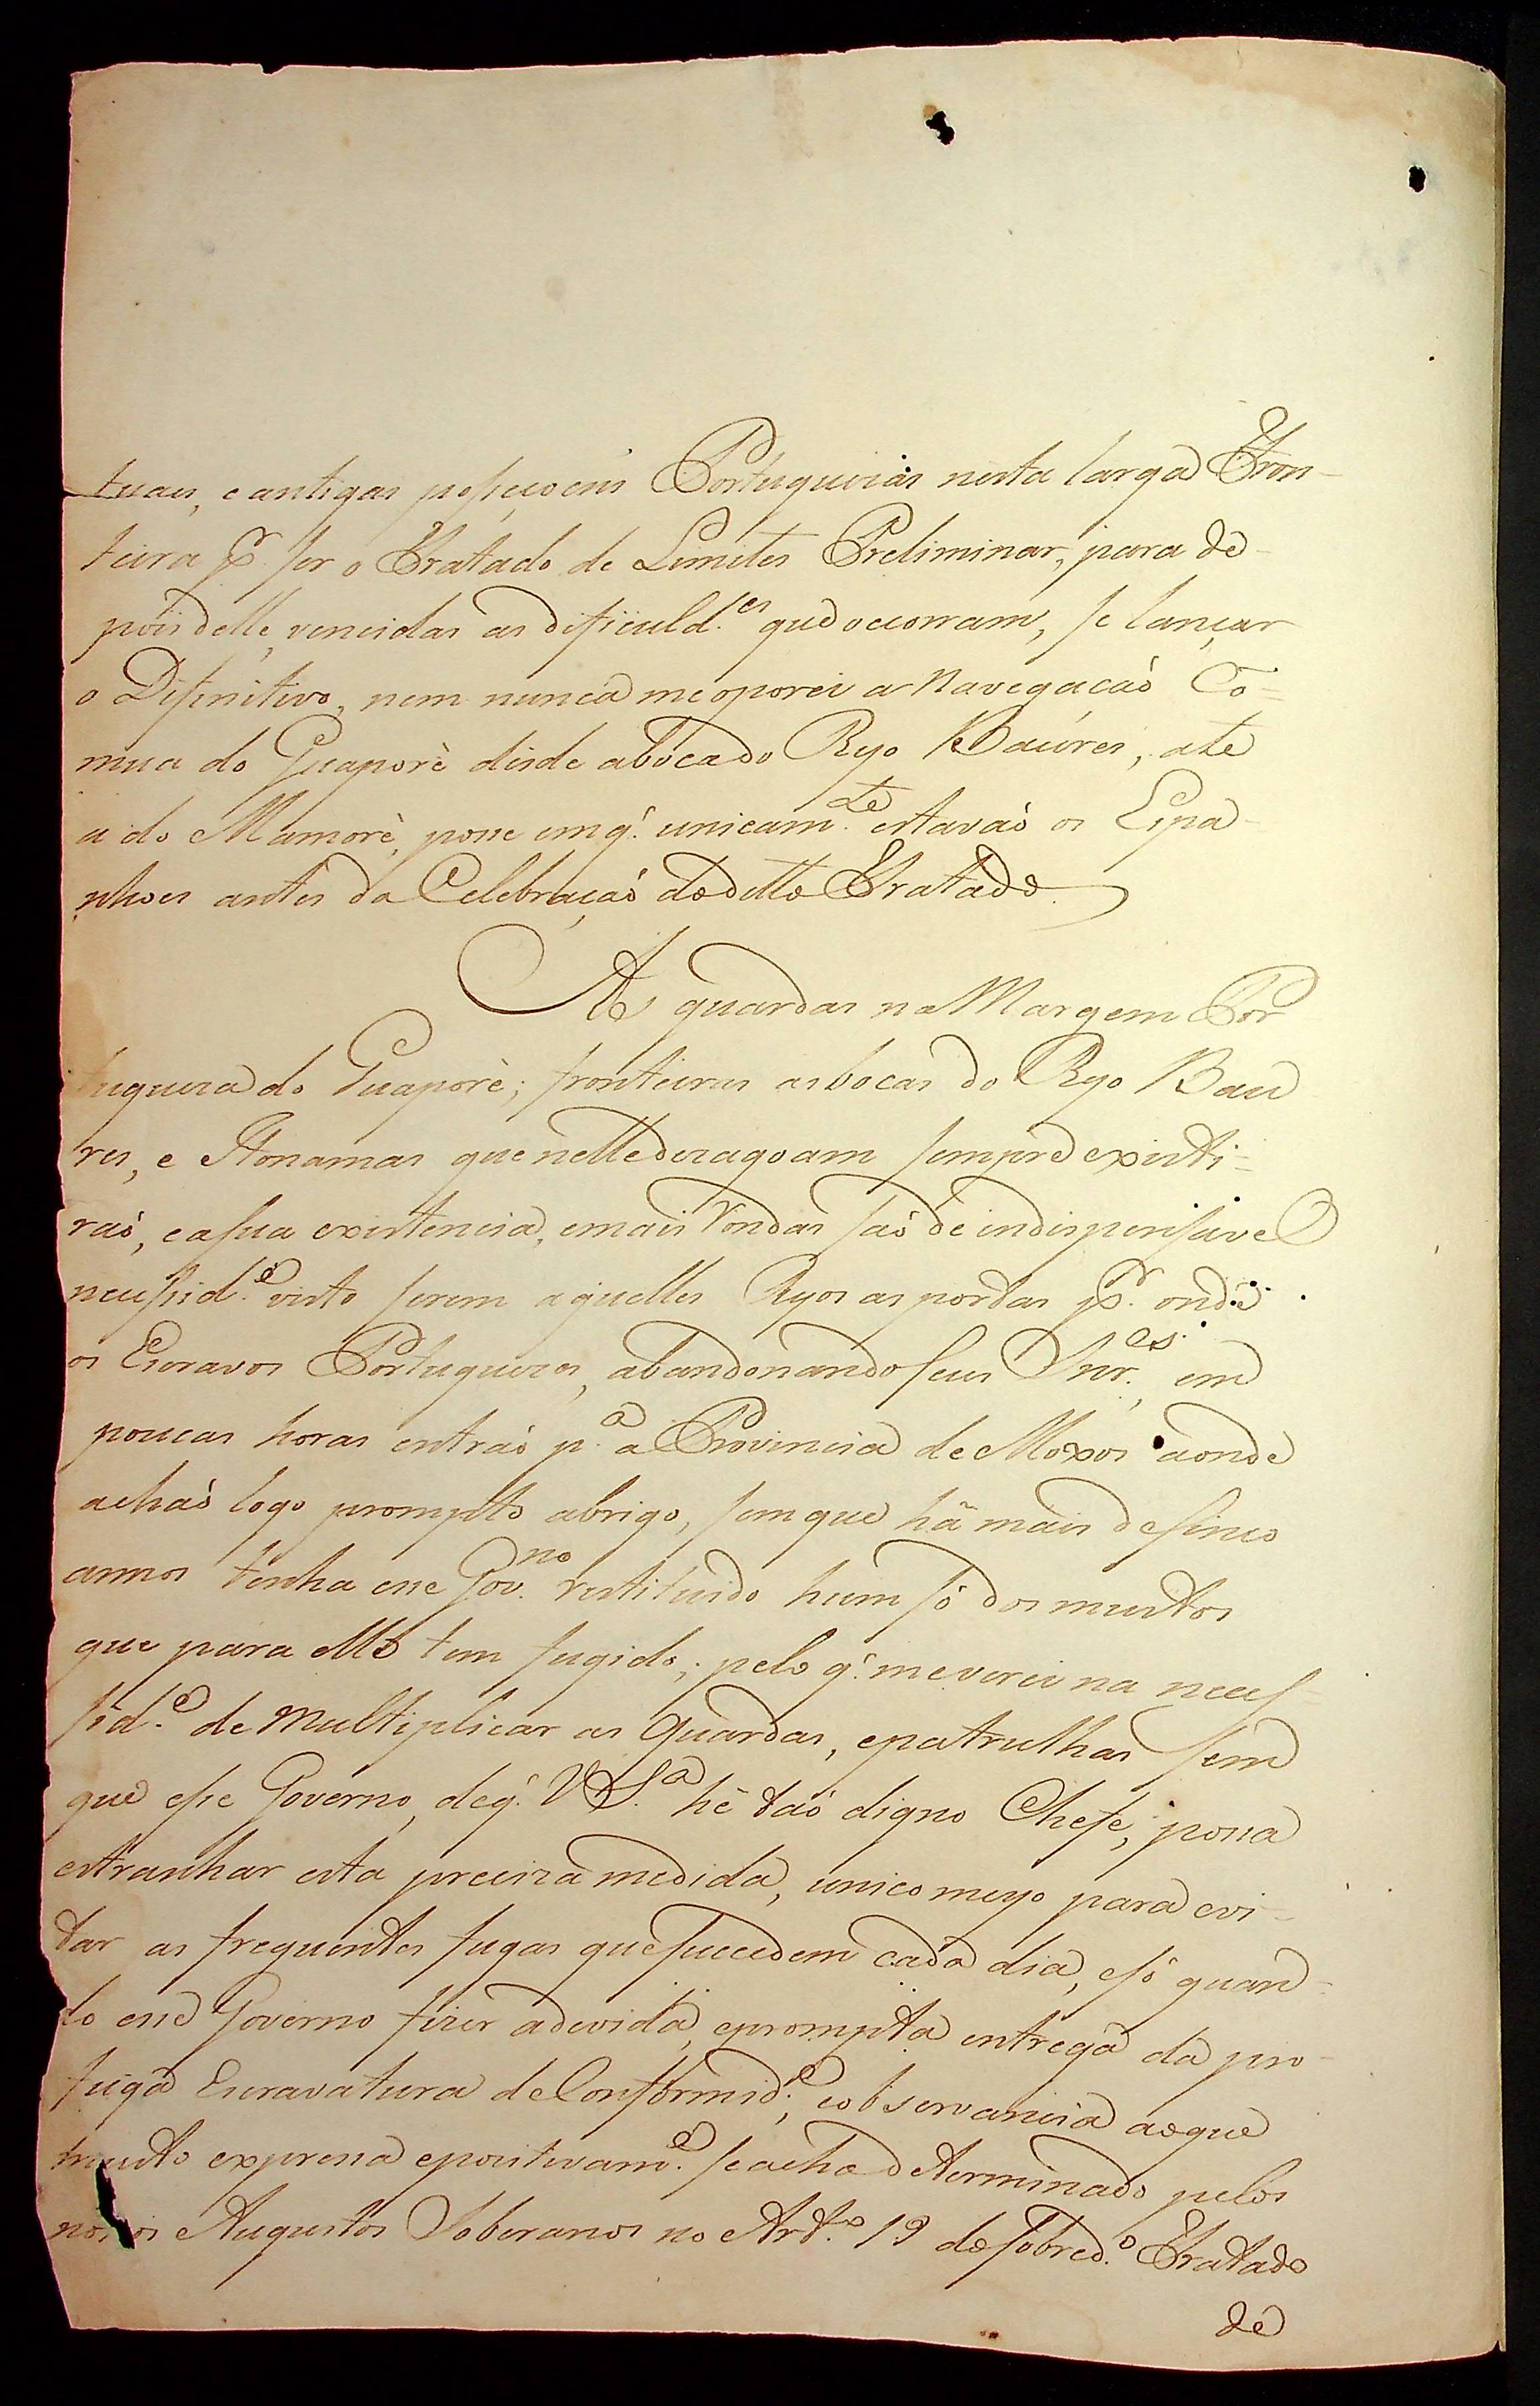 tuaes, e antigas possеçoens Portuguezas nesta larga Fron-
teira pr. ser o Tratado de Limites Preliminar, para de-
pois delle, vencidas as dificuld.es que occorram, se lançar
o Difinitivo, nem nunca me oporei a Navegacaó Co=
mua do Guaporè desde aboca do Ryo Baures, ate
a do Mamorè, posse em q.' unicam.te estavaó os Espa-
nhoes antes da Celebraçaó do ditto Tratado.
As guardas na Margem Por
tugueza do Guaporè; fronteiras as bocas do Ryo Bau
res, e Itonamas que nelle dezagoam sempre existi=
raó, e a sua existencia, e mais Rondas saó de indispensavel
necessid.e visto serem aquelles Ryos as portas pr. onde
os Escravos Portuguezes, abandonando seus Snr.es, em
poucas horas entraó p.a a Provincia de Moxos aonde
achaó logo prompto abrigo, sem que hã mais de sinco
annos tenha esse Gov.no restituido hum só dos muitos
que para elle tem fugido; pelo q.' me verei na neces=
sid.e de multiplicar as Guardas, e patrulhas sem
que esse Governo, de q.' V S.a hé taó digno Chefe, possa
estranhar esta preciza medida, unico meyo para evi-
tar as frequentes fugas que sucedem cada dia, e só quan-
do esse Governo fizer a devida, e prompta entrega da pro-
fuga Escravatura de Conformid.e, e observancia ao que
muito expressa e positivam.e se acha determinado pelos
nossos Augustos Soberanos no Art.o 19 do sobred.o Tratado
de